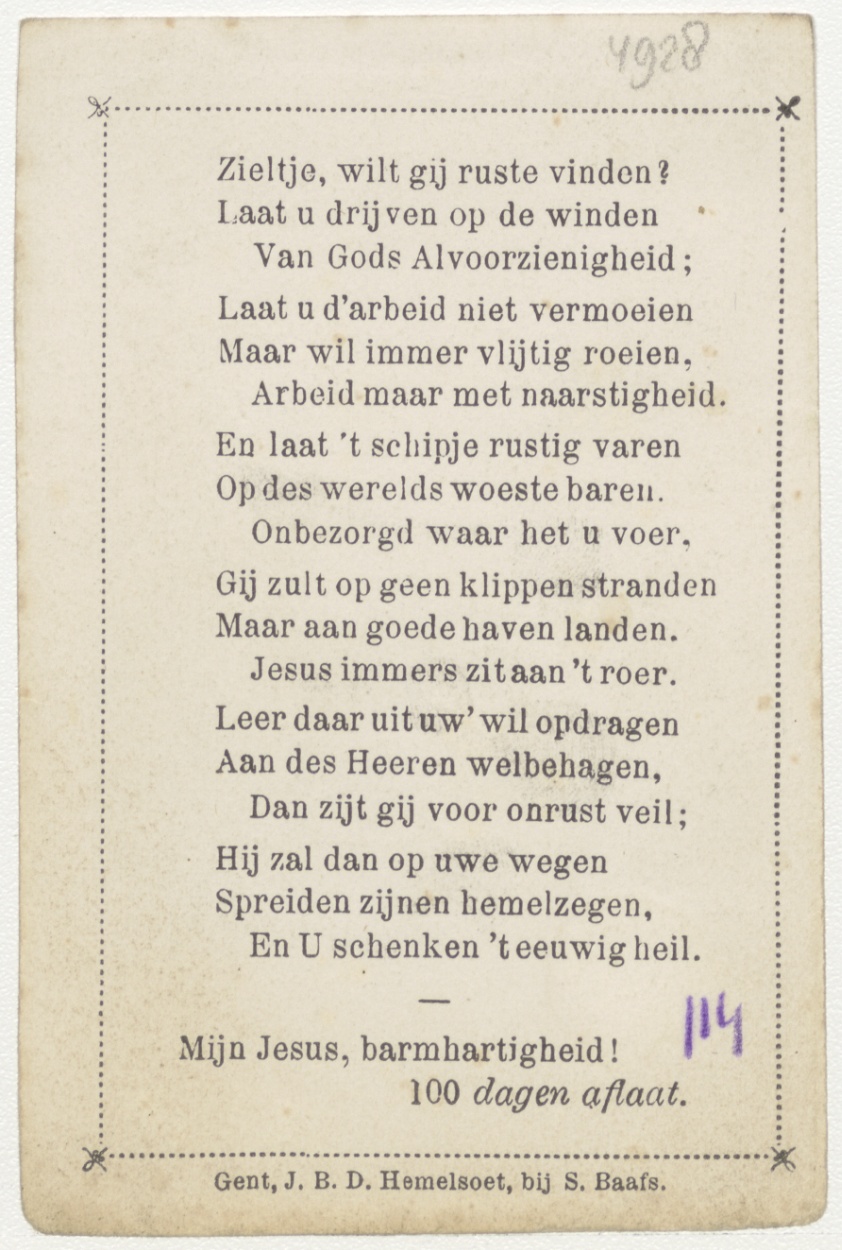 4928
Zieltje, wilt gij ruste vinden?
Laat u drijven op de winden
Van Gods Alvoorzienigheid;
Laat u d'arbeid niet vermoeien
Maar wil immer vlijtig roeien,
Arbeid maar met naarstigheid.
En laat 't schipje rustig varen
Op des werelds woeste baren.
Onbezorgd waar het u voer,
Gij zult op geen klippen stranden
Maar aan goede haven landen.
Jesus immers zit aan 't roer.
Leer daar uit uw' wil opdragen
Aan des Heeren welbehagen,
Dan zijt gij voor onrust veil;
Hij zal dan op uwe wegen
Spreiden zijnen hemelzegen,
En U schenken 't eeuwig heil.
—
Mijn Jesus, barmhartigheid!
100 dagen aflaat.
114
Gent, J. B. D. Hemelsoet, bij S. Baafs.